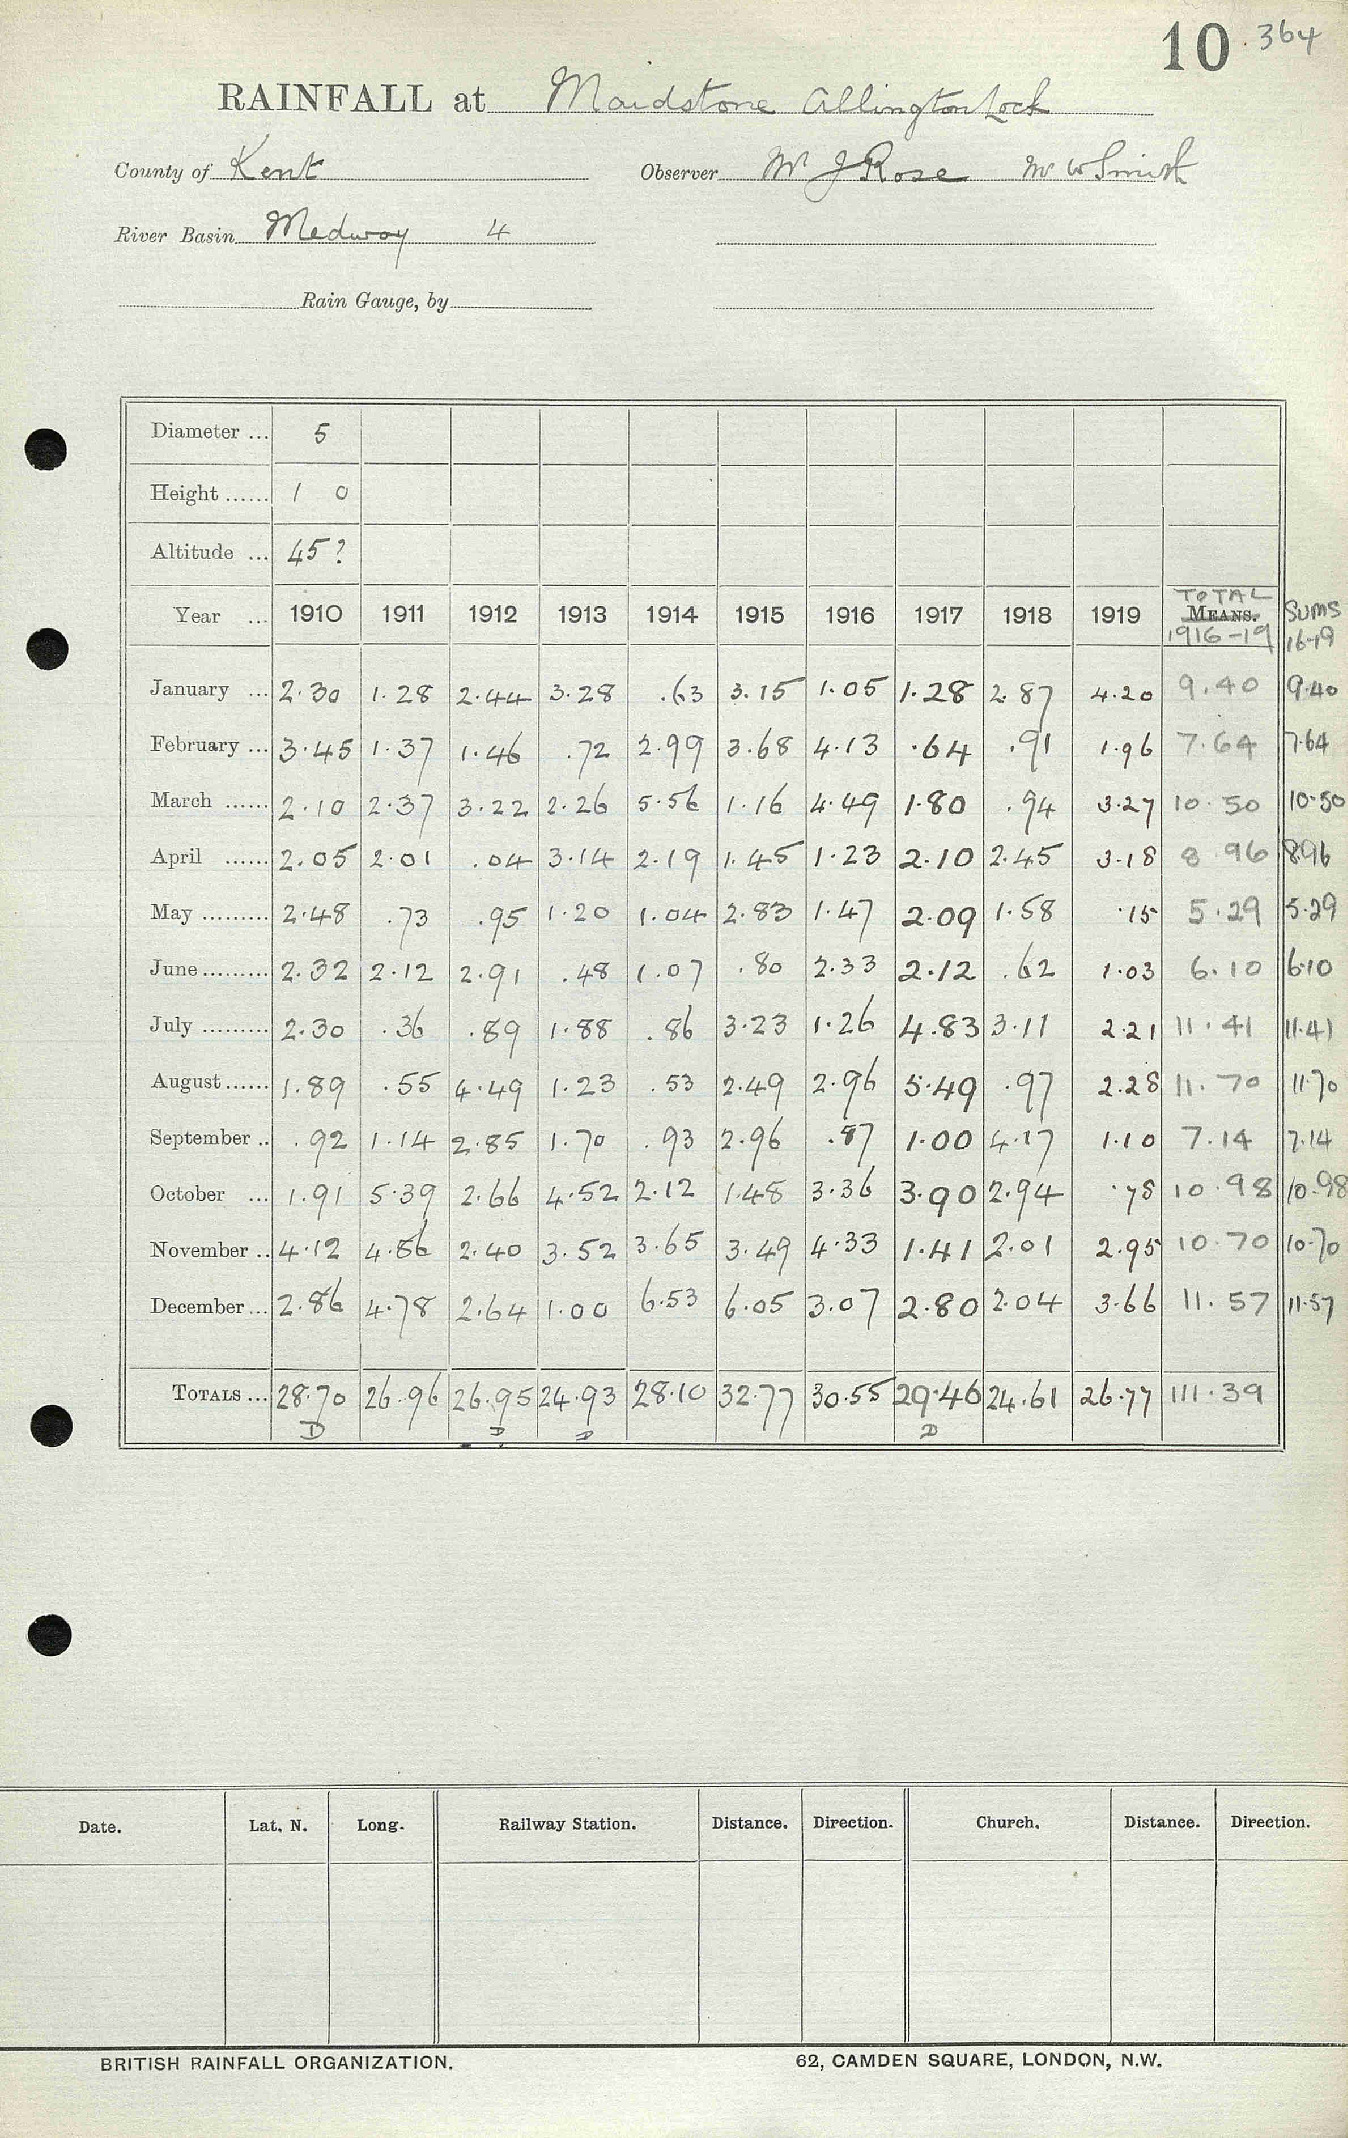 10 364
RAINFALL at Maidstone Allington Lock
County of Kent Observer Mr J Rose Mr W Smith
River Basin Medway 4
Rain Gauge, by
Diameter ... 5
Height ...... 1 0
Altitude ... 45?
Year ... 1910 1911 1912 1913 1914 1915 1916 1917 1918 1919 TOTAL MEANS. 1916-19 SUMS 16-19
January ... 2.30 1.28 2.44 3.28 .63 3.15 1.05 1.28 2.87 4.20 9.40 9.40
February ... 3.45 1.37 1.46 .72 2.99 3.68 4.13 .64 .91 1.96 7.64 7.64
March ...... 2.10 2.37 3.22 2.26 5.56 1.16 4.49 1.80 .94 3.27 10.50 10.50
April ...... 2.05 2.01 .04 3.14 2.19 1.45 1.23 2.10 2.45 3.18 8.96 8.96
May ......... 2.48 .73 .95 1.20 1.04 2.83 1.47 2.09 1.58 .15 5.29 5.29
June ......... 2.32 2.12 2.91 .48 1.07 .80 2.33 2.12 .62 1.03 6.10 6.10
July ......... 2.30 .36 .89 1.88 .86 3.23 1.26 4.83 3.11 2.21 11.41 11.41
August ...... 1.89 .55 4.49 1.23 .53 2.49 2.96 5.49 .97 2.28 11.70 11.70
September .. .92 1.14 2.85 1.70 .93 2.96 .87 1.00 4.17 1.10 7.14 7.14
October ... 1.91 5.39 2.66 4.52 2.12 1.48 3.36 3.90 2.94 .78 10.98 10.98
November .. 4.12 4.86 2.40 3.52 3.65 3.49 4.33 1.41 2.01 2.95 10.70 10.70
December ... 2.86 4.78 2.64 1.00 6.53 6.05 3.07 2.80 2.04 3.66 11.57 11.57
TOTALS ... 28.70 26.96 26.95 24.93 28.10 32.77 30.55 29.46 24.61 26.77 111.39
D D D D
Date. Lat. N. Long. Railway Station. Distance. Direction. Church. Distance. Direction.
BRITISH RAINFALL ORGANIZATION. 62, CAMDEN SQUARE, LONDON, N.W.